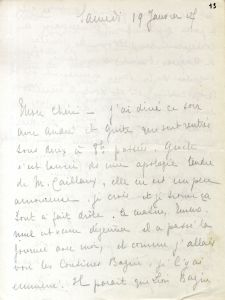 13
Samedi 19 Janvier
chéri — j'ai dîné ce soir
avec André et Guite qui sont rentrés
tous deux à 8h passées. Guite
s'est lancée de une apologie tendre
de M. Caillaux, elle en est un peu
amoureuse je crois et je trouve ça
tout à fait drôle. Ce matin,
nuel est venu déjeuner il a passé la
journée avec moi, et comme j'allais
voir les Cousines Bazin, je l'y ai
emmené. Il paraît que Léon Bazin